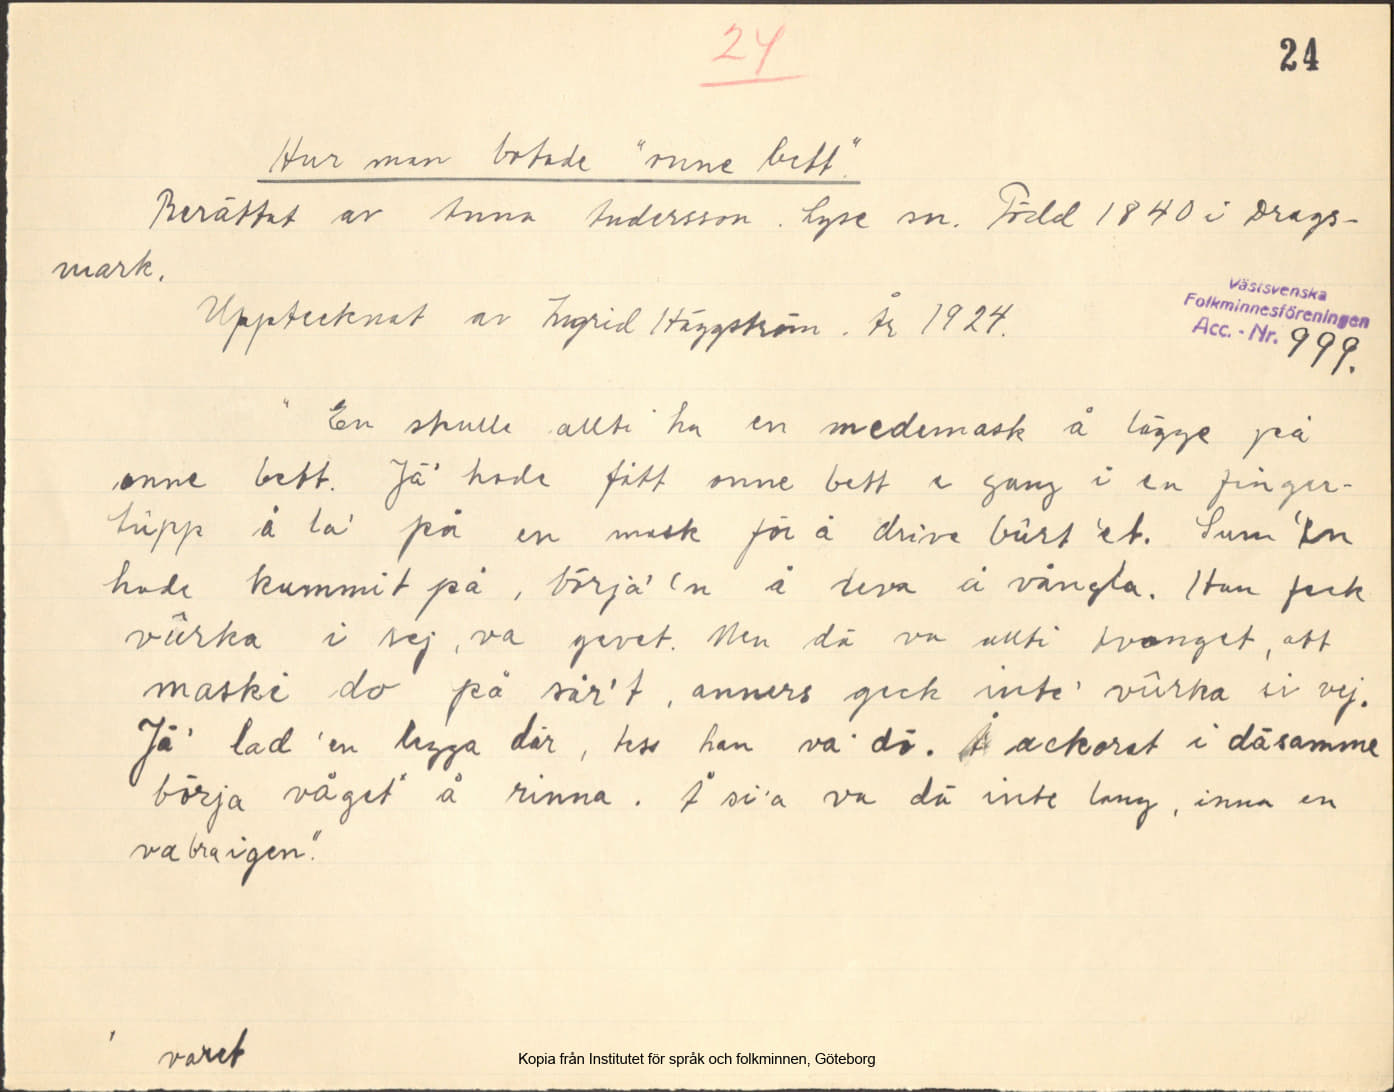 24
24
Hur man botade "onne bett".
Berättat av Anna Andersson. Lyse sn. Född 1840 i Drags-
mark.
Upptecknat av Ingrid Häggström. År 1924.
Västsvenska
Folkminnesföreningen
Acc. - Nr. 999.
" En skulle allti ha en medemask å lägge på
onne bett. Jä' hade fått onne bett e gang i en finger-
tüpp å la' på en mask för å drive bûrt 'et. Sum 'en
hade kummit på, börja' 'n å leva å vångla. Han feck
vûrka i sej, va gevet. Men dä va allti tvonget, att
maski do på sår't, anners geck inte' vûrka si vej.
Jä' lad 'en legga där, tess han va' dö. Å ackorat i däsamme
börja våget' å rinna. Å si'a va dä inte lang, inna en
va bra igen."
' varet
Kopia från Institutet för språk och folkminnen, Göteborg